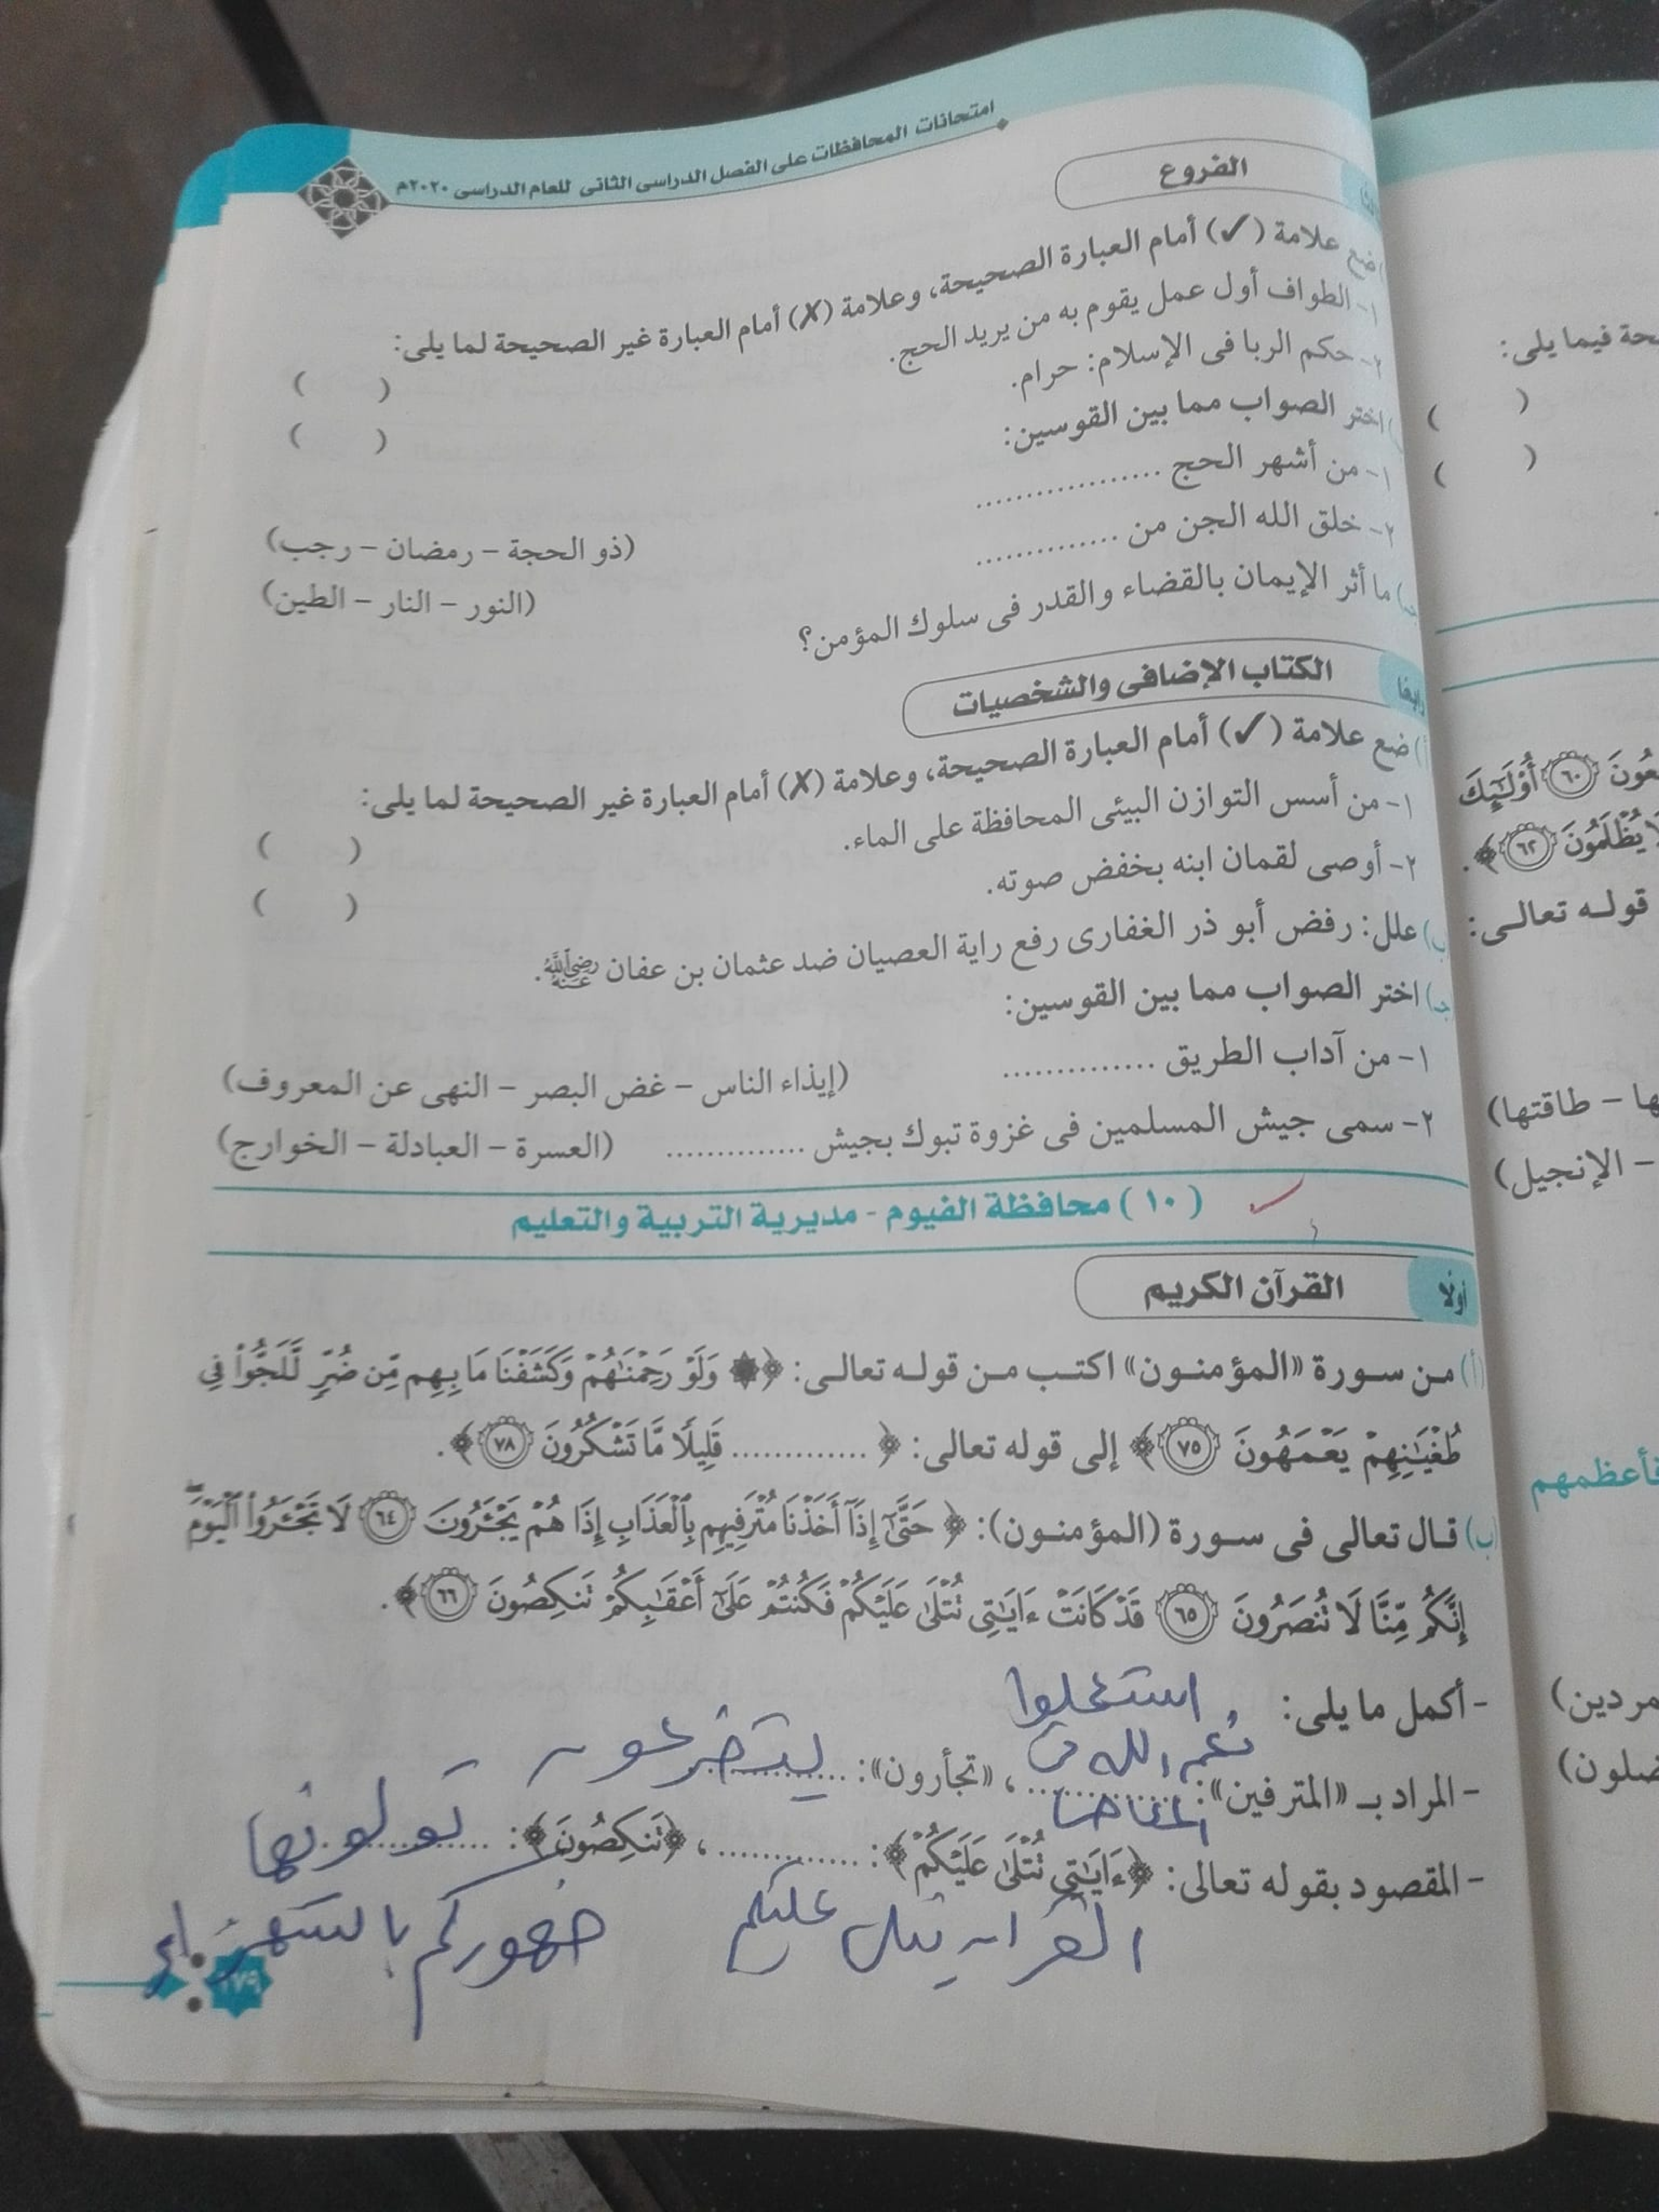 امتحانات المحافظات على الفصل الدراسى الثانى للعام الدراسى ٢٠٢٠م
الفروع
ضع علامة (✓) أمام العبارة الصحيحة، وعلامة (✗) أمام العبارة غير الصحيحة لما يلى:
١- الطواف أول عمل يقوم به من يريد الحج. ( )
٢- حكم الربا فى الإسلام: حرام. ( )
اختر الصواب مما بين القوسين:
١- من أشهر الحج .................. (ذو الحجة - رمضان - رجب)
٢- خلق الله الجن من .............. (النور - النار - الطين)
جـ) ما أثر الإيمان بالقضاء والقدر فى سلوك المؤمن؟
رابعًا الكتاب الإضافى والشخصيات
أ) ضع علامة (✓) أمام العبارة الصحيحة، وعلامة (✗) أمام العبارة غير الصحيحة لما يلى:
١- من أسس التوازن البيئى المحافظة على الماء. ( )
٢- أوصى لقمان ابنه بخفض صوته. ( )
ب) علل: رفض أبو ذر الغفارى رفع راية العصيان ضد عثمان بن عفان رضي الله عنه.
جـ) اختر الصواب مما بين القوسين:
١- من آداب الطريق .............. (إيذاء الناس - غض البصر - النهى عن المعروف)
٢- سمى جيش المسلمين فى غزوة تبوك بجيش .............. (العسرة - العبادلة - الخوارج)
(١٠) محافظة الفيوم - مديرية التربية والتعليم
أولًا القرآن الكريم
(أ) من سورة «المؤمنون» اكتب من قوله تعالى: ﴿۞ وَلَوْ رَحِمْنَٰهُمْ وَكَشَفْنَا مَا بِهِم مِّن ضُرٍّ لَّلَجُّوا۟ فِى
طُغْيَٰنِهِمْ يَعْمَهُونَ ٧٥﴾ إلى قوله تعالى: ﴿ .............. قَلِيلًا مَّا تَشْكُرُونَ ٧٨﴾.
(ب) قال تعالى فى سورة (المؤمنون): ﴿حَتَّىٰٓ إِذَآ أَخَذْنَا مُتْرَفِيهِم بِٱلْعَذَابِ إِذَا هُمْ يَجْـَٔرُونَ ٦٤ لَا تَجْـَٔرُوا۟ ٱلْيَوْمَ
إِنَّكُم مِّنَّا لَا تُنصَرُونَ ٦٥ قَدْ كَانَتْ ءَايَٰتِى تُتْلَىٰ عَلَيْكُمْ فَكُنتُمْ عَلَىٰٓ أَعْقَٰبِكُمْ تَنكِصُونَ ٦٦﴾.
- أكمل ما يلى:
استعملوا
نعم الله فى
- المراد بـ «المترفين»: ..............، «تجأرون»: .............. يتضرعون
- المقصود بقوله تعالى: ﴿ءَايَٰتِى تُتْلَىٰ عَلَيْكُمْ﴾: ..............، ﴿تَنكِصُونَ﴾: .............. تولونها
القرآن يتلى عليكم
ظهوركم
١٧٩
حة فيما يلى:
( )
( )
عُونَ ٦٠ أُو۟لَٰٓئِكَ
لَا يُظْلَمُونَ ٦٢﴾.
قوله تعالى:
ها - طاقتها)
- الإنجيل)
فأعظمهم
مردين)
ضلون)